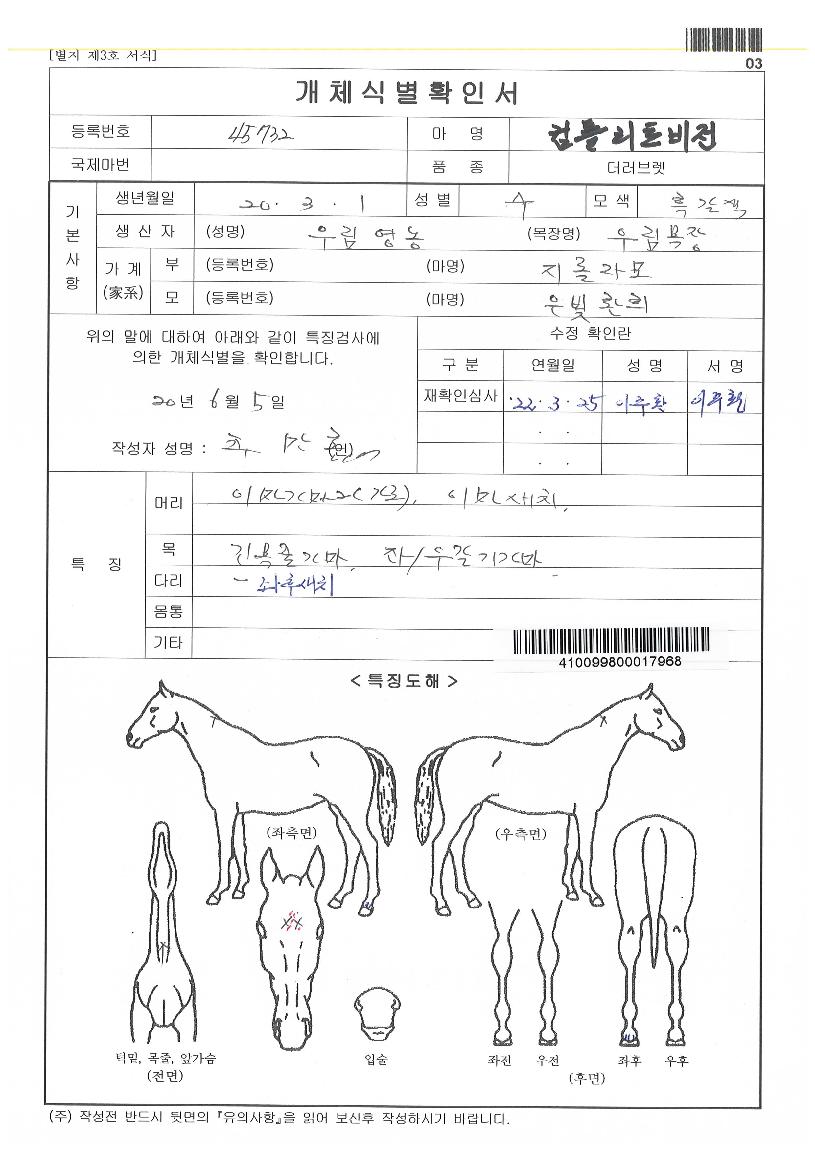 [별지 제3호 서식]
03
개체식별확인서
등록번호 45732 마 명 컴플리트비전
국제마번 품 종 더러브렛
기본사항
생년월일 20. 3. 1 성별 수 모색 흑갈색
생산자 (성명) 우림영농 (목장명) 우림목장
가계(家系) 부 (등록번호) (마명) 지롤라모
모 (등록번호) (마명) 은빛환희
위의 말에 대하여 아래와 같이 특징검사에
의한 개체식별을 확인합니다.
20년 6월 5일
작성자 성명 : (인)
수정 확인란
구 분 연월일 성 명 서 명
재확인심사 '22. 3. 25
. .
. .
특 징
머리 이마가마2(가로), 이마새치.
목 긴목줄가마, 좌/우갈기가마
다리 - 좌후새치
몸통
기타
410099800017968
< 특징도해 >
(좌측면)
(우측면)
턱밑, 목줄, 앞가슴
(전면)
입술
좌전 우전 좌후 우후
(후면)
(주) 작성전 반드시 뒷면의 『유의사항』을 읽어 보신후 작성하시기 바랍니다.